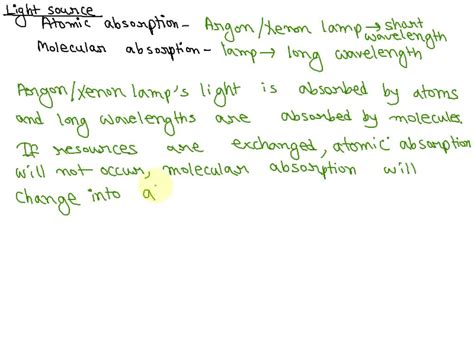 Light source
Atomic absorption - Argon/Xenon lamp → short wavelength
Molecular absorption - lamp → long wavelength
Argon/Xenon lamp's light is absorbed by atoms
and long wavelengths are absorbed by molecules.
If resources are exchanged, atomic absorption
will not occur, molecular absorption will
change into a